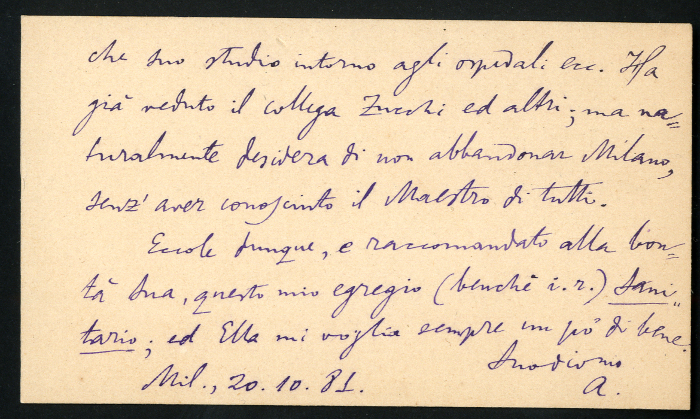 che suo studio intorno agli ospedali ecc. Ha
già veduto il collega Zucchi ed altri; ma na=
turalmente desidera di non abbandonar Milano,
senz' aver conosciuto il Maestro di tutti.
Eccole dunque, e raccomandato alla bon=
tà Sua, questo mio egregio (benchè i. r.) Sani=
tario; ed Ella mi voglia sempre un pò di bene.
Suo
Mil., 20. 10. 81. A.